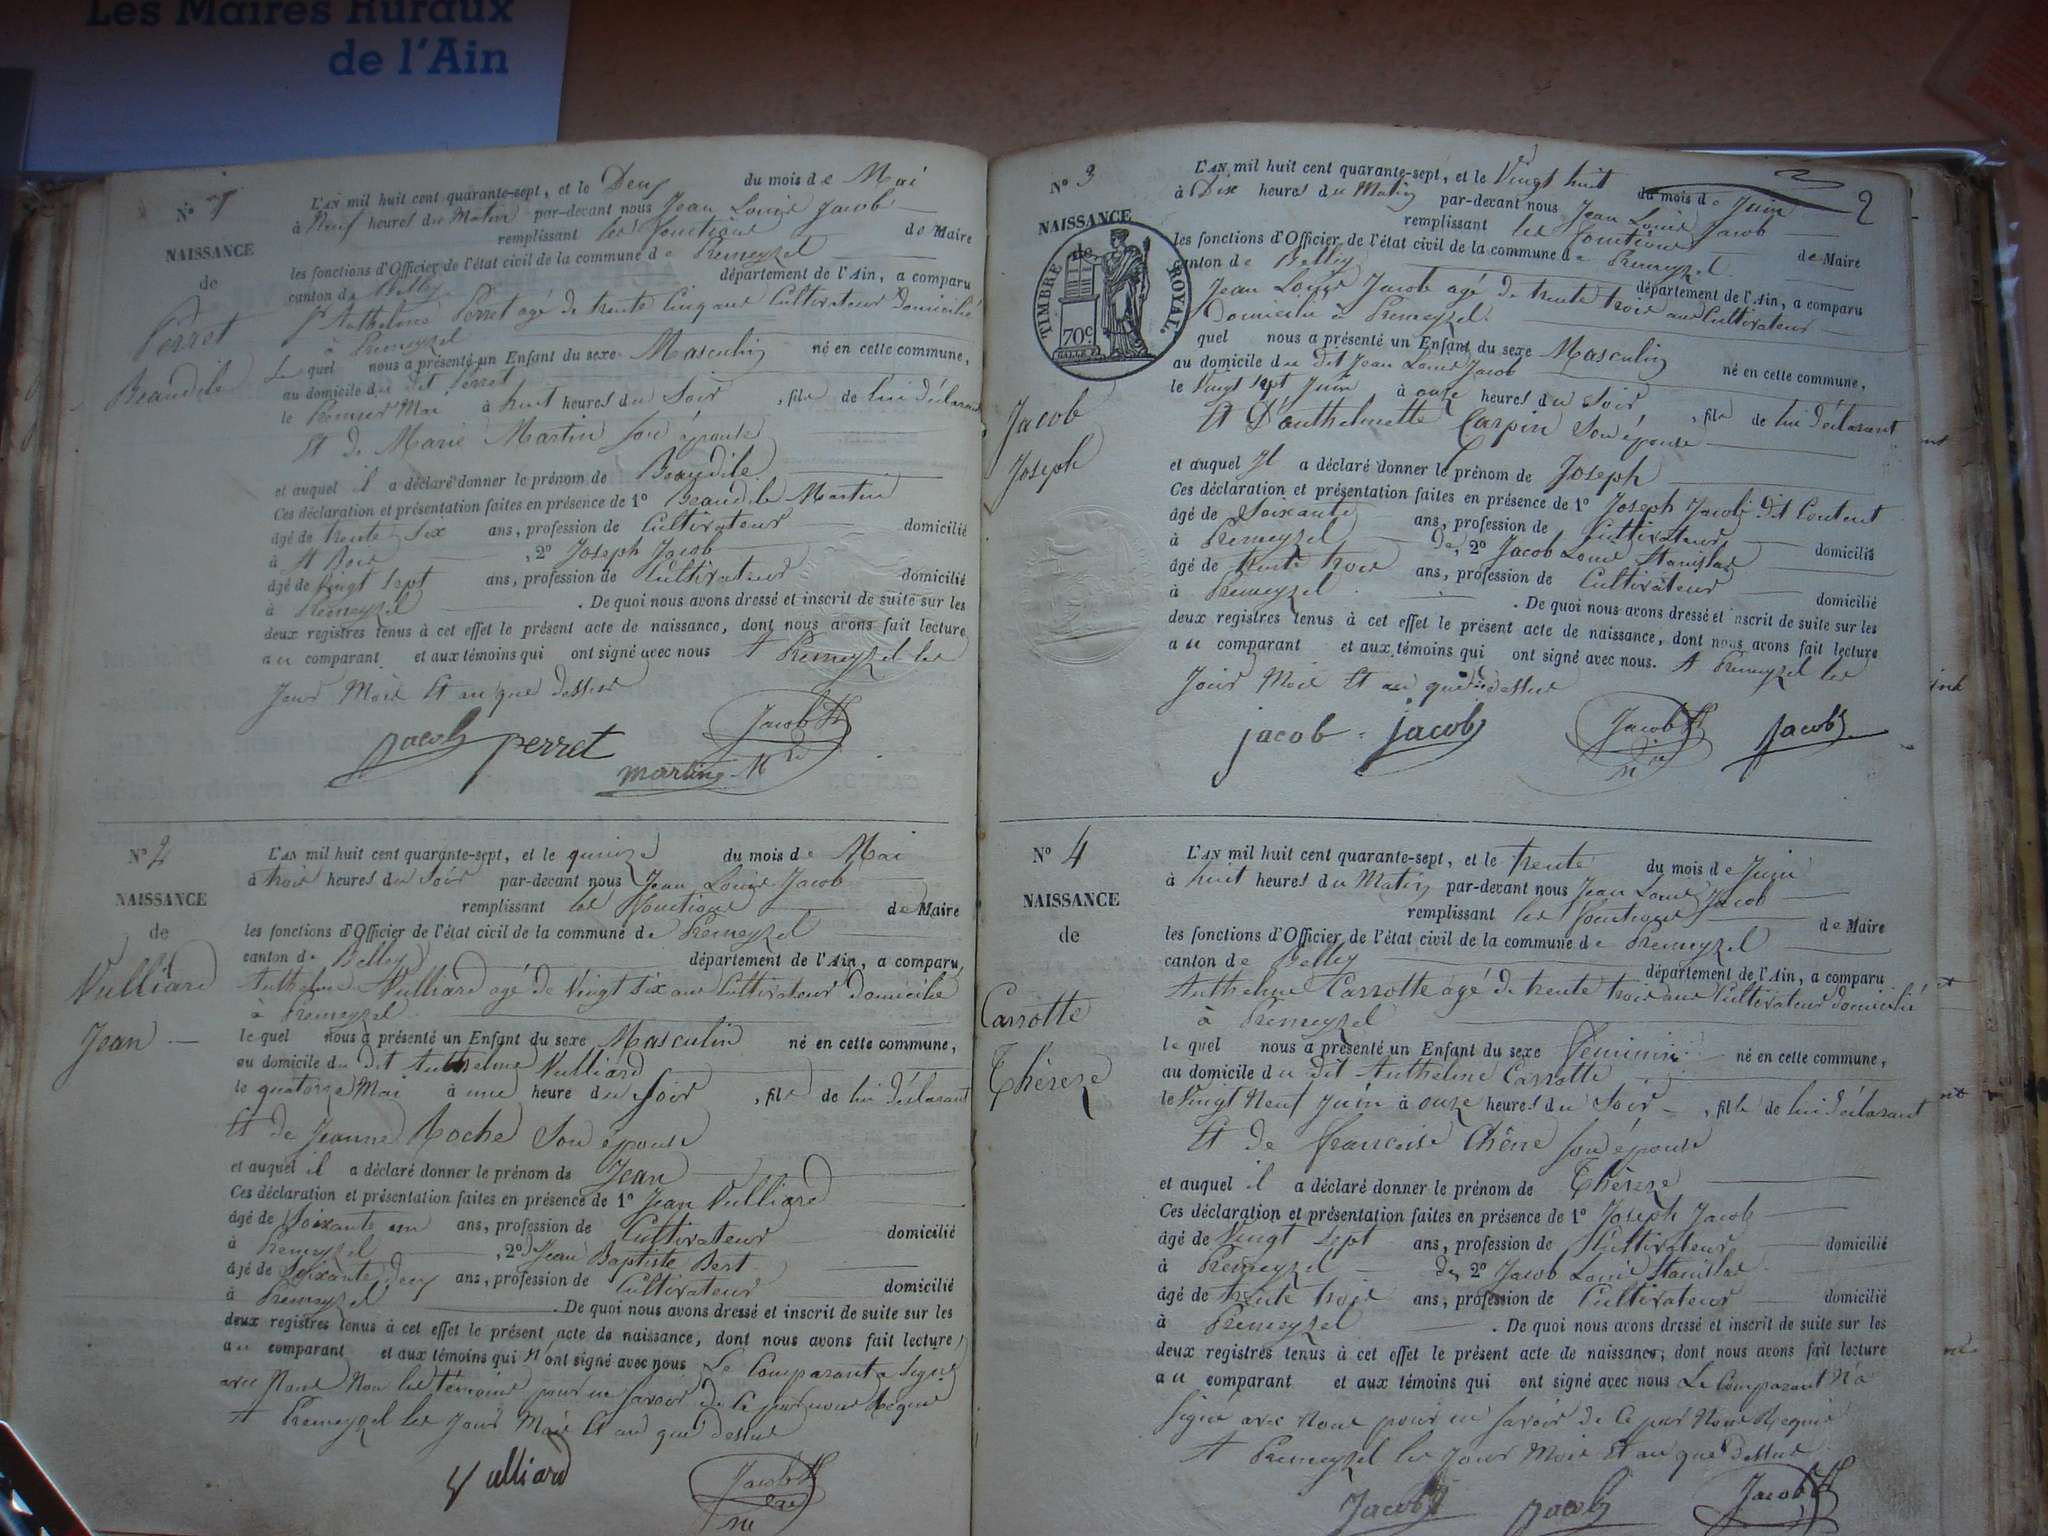 Les Maires Ruraux
de l'Ain
N° 1
NAISSANCE
de
Perret
Beaudile
L'AN mil huit cent quarante-sept, et le Deux du mois de Mai
à Neuf heures du Matin par-devant nous Jean Louis Jacob
remplissant les fonctions de Maire
les fonctions d'Officier de l'état civil de la commune de Premeyzel
canton de Belley département de l'Ain, a comparu
Anthelme Perret agé de trente Cinq ans Cultivateur Domicilié
à Premeyzel
Le quel nous a présenté un Enfant du sexe Masculin né en cette commune,
au domicile du dit Perret
le Premier Mai à huit heures du Soir, fils de lui déclarant
Et de Marie Martin son épouse
et auquel il a déclaré donner le prénom de Beaudile
Ces déclaration et présentation faites en présence de 1° Beaudile Martin
âgé de trente Six ans, profession de Cultivateur domicilié
à St Bois, 2° Joseph Jacob
âgé de Vingt Sept ans, profession de Cultivateur domicilié
à Premeyzel. De quoi nous avons dressé et inscrit de suite sur les
deux registres tenus à cet effet le présent acte de naissance, dont nous avons fait lecture
au comparant et aux témoins qui ont signé avec nous A Premeyzel les
Jour Mois Et an que dessus
Jacob perret Jacob
martin
N° 2
NAISSANCE
de
Vulliard
Jean
L'AN mil huit cent quarante-sept, et le quinze du mois de Mai
à trois heures du Soir par-devant nous Jean Louis Jacob
remplissant les fonctions de Maire
les fonctions d'Officier de l'état civil de la commune de Premeyzel
canton de Belley département de l'Ain, a comparu
Anthelme Vulliard agé de Vingt Six ans Cultivateur domicilié
à Premeyzel
le quel nous a présenté un Enfant du sexe Masculin né en cette commune,
au domicile du dit Anthelme Vulliard
le quatorze Mai à une heure du Soir, fils de lui déclarant
Et de Jeanne Roche Son épouse
et auquel il a déclaré donner le prénom de Jean
Ces déclaration et présentation faites en présence de 1° Jean Vulliard
âgé de Soixante un ans, profession de Cultivateur domicilié
à Premeyzel, 2° Jean Baptiste Bert
âgé de Soixante deux ans, profession de Cultivateur domicilié
à Premeyzel. De quoi nous avons dressé et inscrit de suite sur les
deux registres tenus à cet effet le présent acte de naissance, dont nous avons fait lecture
au comparant et aux témoins qui n'ont signé avec nous Le Comparant a Signé
avec Nous Non les témoins pour ne savoir de ce par nous Requis
A Premeyzel les Jour Mois Et an que dessus
Vulliard Jacob
N° 3
2
NAISSANCE
de
TIMBRE ROYAL.
70c
Jacob
Joseph
L'AN mil huit cent quarante-sept, et le Vingt huit du mois de Juin
à Dix heures du Matin par-devant nous Jean Louis Jacob
remplissant les fonctions de Maire
les fonctions d'Officier de l'état civil de la commune de Premeyzel
canton de Belley département de l'Ain, a comparu
Jean Louis Jacob agé de trente trois ans Cultivateur
Domicilié à Premeyzel
quel nous a présenté un Enfant du sexe Masculin né en cette commune,
au domicile du dit Jean Louis Jacob
le Vingt Sept Juin à onze heures du Soir, fils de lui déclarant
Et D'anthelmette Carpin Son épouse
et auquel Il a déclaré donner le prénom de Joseph
Ces déclaration et présentation faites en présence de 1° Joseph Jacob dit Content
âgé de Soixante ans, profession de Cultivateur domicilié
à Premeyzel de, 2° Jacob Louis Stanislas
âgé de trente trois ans, profession de Cultivateur domicilié
à Premeyzel. De quoi nous avons dressé et inscrit de suite sur les
deux registres tenus à cet effet le présent acte de naissance, dont nous avons fait lecture
au comparant et aux témoins qui ont signé avec nous. A Premeyzel les
Jour Mois Et an que dessus
jacob jacob Jacob Jacob
N° 4
NAISSANCE
de
Carrotte
Thérèze
L'AN mil huit cent quarante-sept, et le trente du mois de Juin
à huit heures du Matin par-devant nous Jean Louis Jacob
remplissant les fonctions de Maire
les fonctions d'Officier de l'état civil de la commune de Premeyzel
canton de Belley département de l'Ain, a comparu
Anthelme Carrotte agé de trente trois ans Cultivateur domicilié
à Premeyzel
le quel nous a présenté un Enfant du sexe féminin né en cette commune,
au domicile du dit Anthelme Carrotte
le Vingt Neuf Juin à onze heures du Soir, fille de lui déclarant
Et de françoise Chêne son épouse
et auquel il a déclaré donner le prénom de Thérèze
Ces déclaration et présentation faites en présence de 1° Joseph Jacob
âgé de Vingt Sept ans, profession de Cultivateur domicilié
à Premeyzel de 2° Jacob Louis Stanislas
âgé de trente trois ans, profession de Cultivateur domicilié
à Premeyzel. De quoi nous avons dressé et inscrit de suite sur les
deux registres tenus à cet effet le présent acte de naissance, dont nous avons fait lecture
au comparant et aux témoins qui ont signé avec nous Le Comparant N'a
Signé avec Nous pour ne savoir de Ce par Nous Requis
A Premeyzel les Jour Mois Et an que dessus
Jacob Jacob Jacob